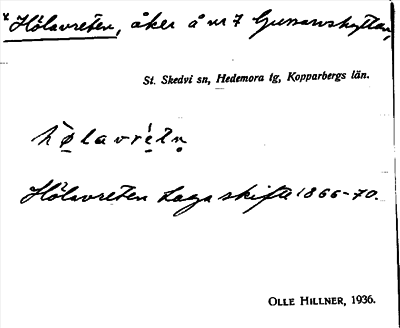 *Hölavreten, åker å nr 7 Gussarvshyttan,
St. Skedvi sn, Hedemora tg, Kopparbergs län.
hø̱lavrètn̥
Hölavreten Laga skifte 1866-70.
OLLE HILLNER, 1936.